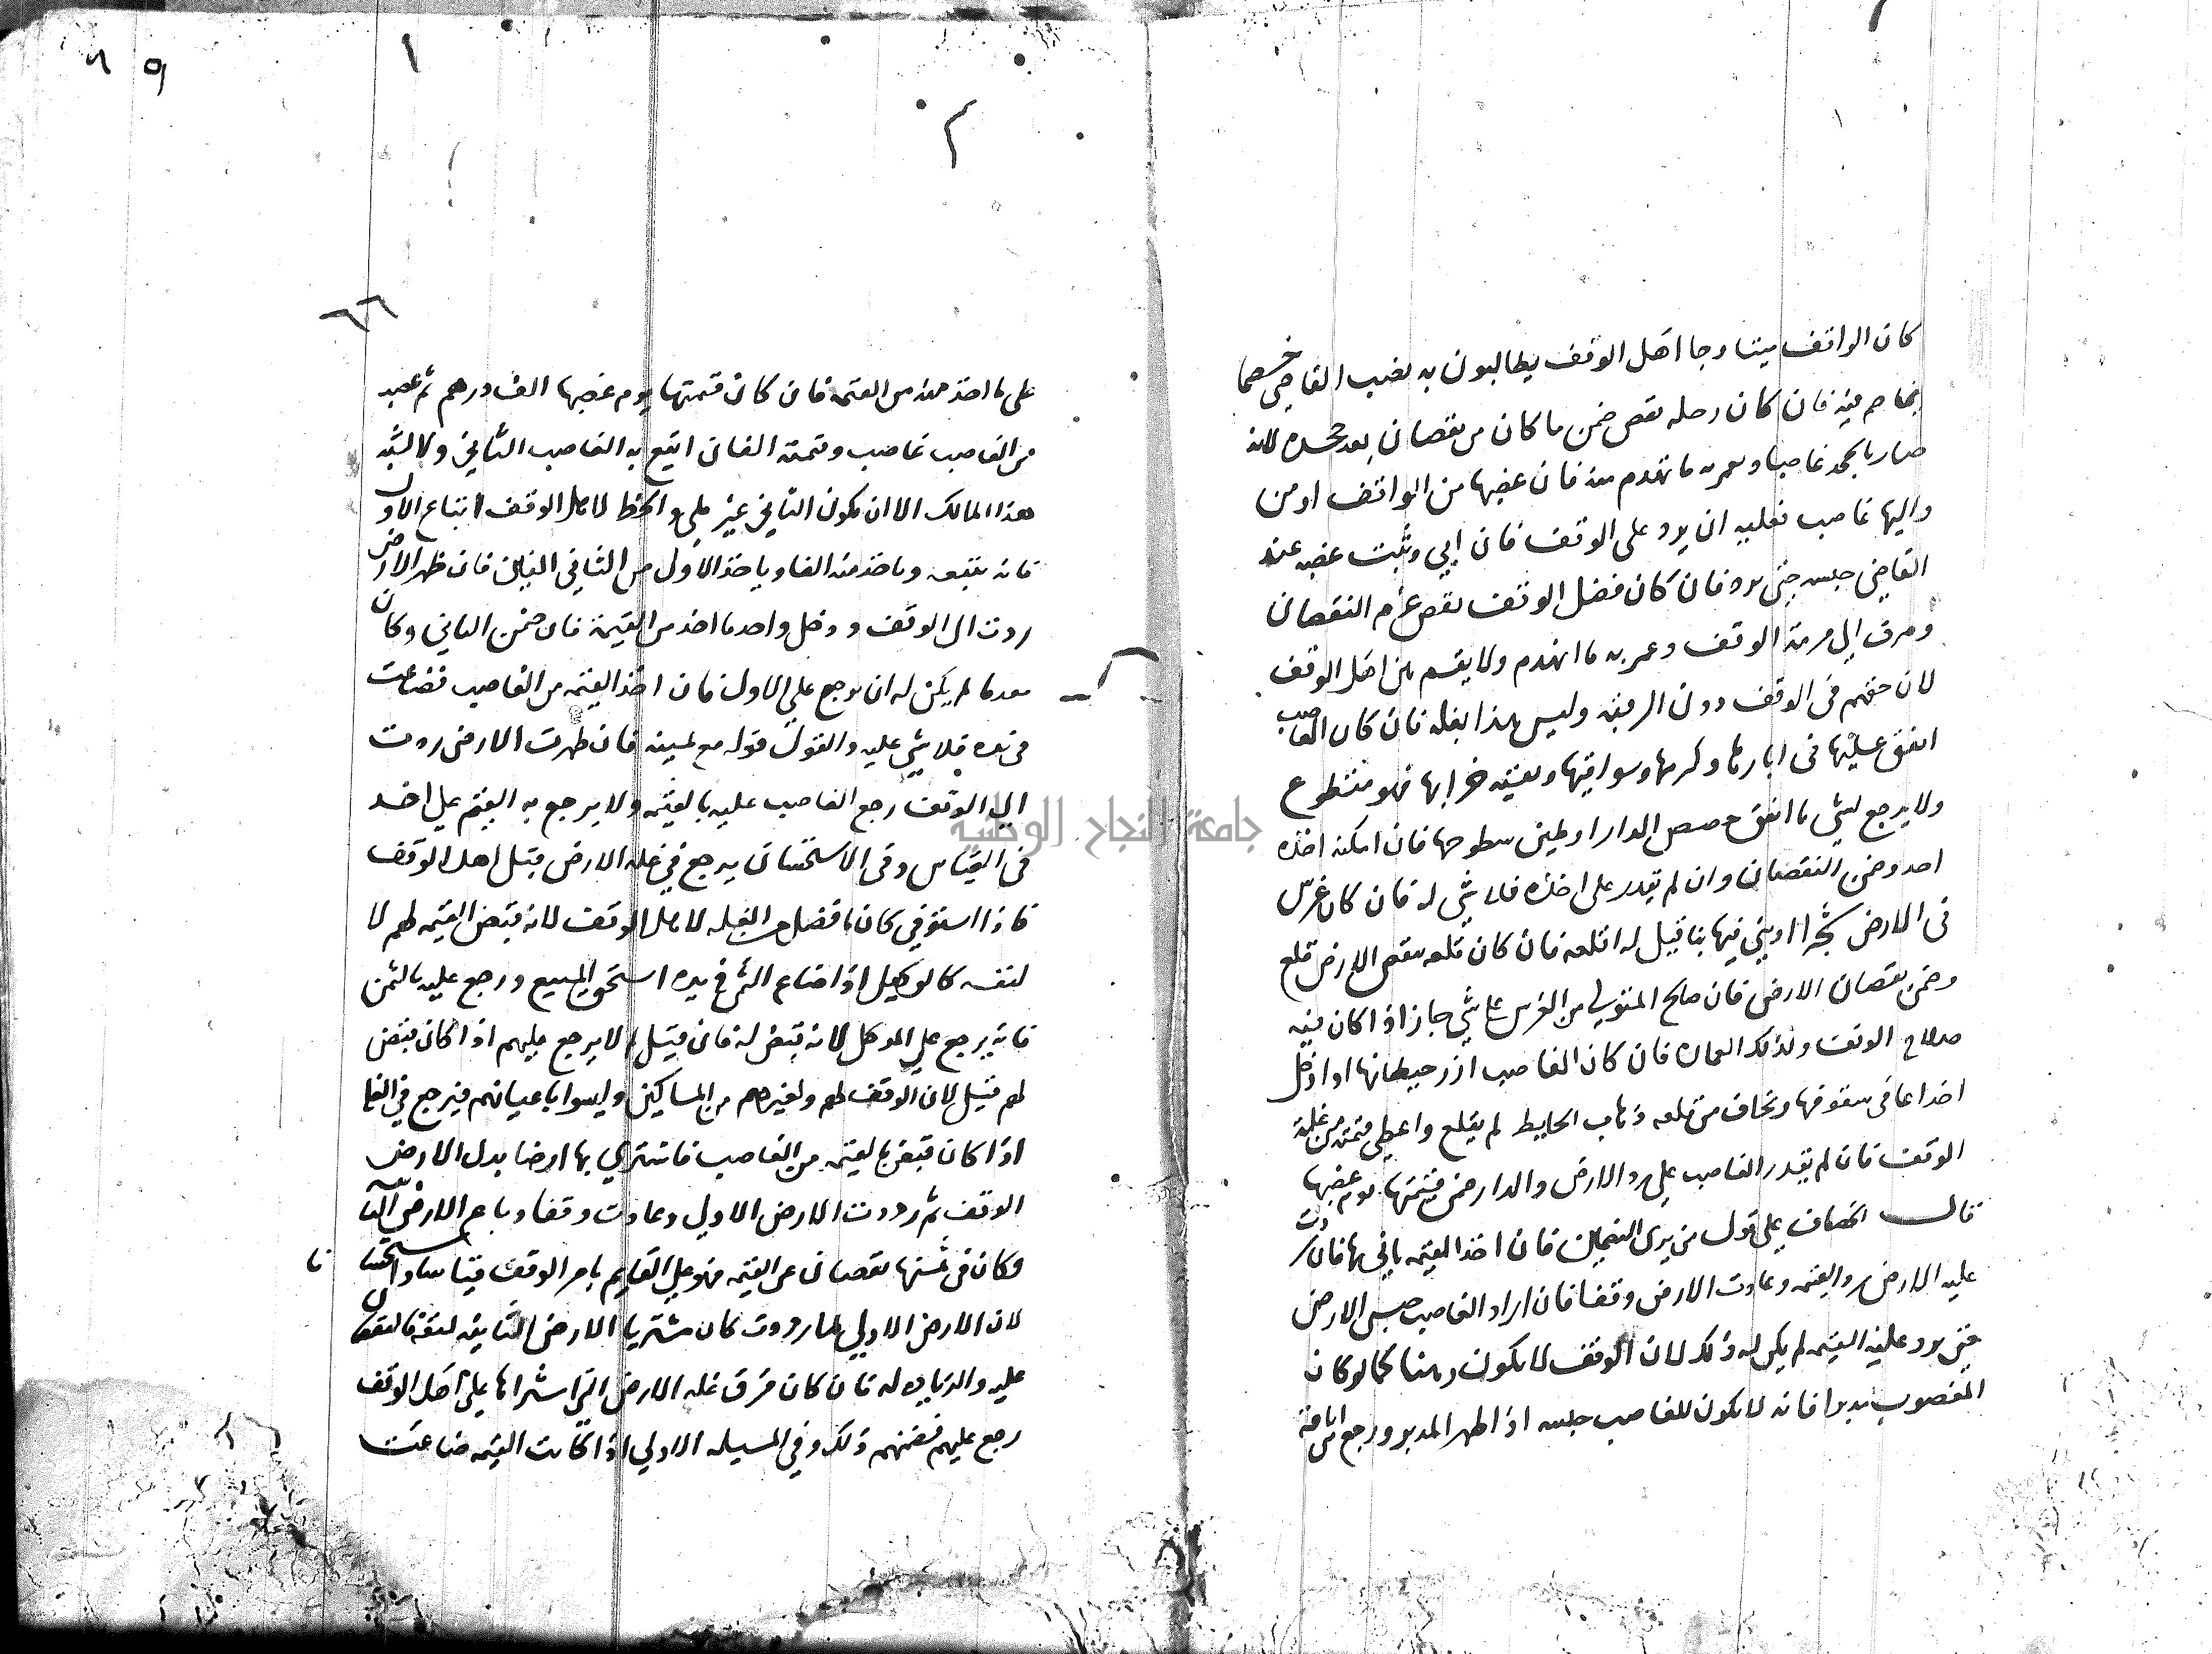 كان الواقف ميتا وجا اهل الوقف يطالبون به نصب القاضي خصما
يخاصم فيه فان كان دخله نقص ضمن ما كان من نقصان بعد جحده لانه
صار بالجحد غاصبا ويعمر به ما تهدم منه فان غصبها من الواقف او من
واليها غاصب فعليه ان يرد على الوقف فان ابي وثبت غصبه عند
القاضي حبسه حتى يرد فان كان فضل الوقف نقص غرم النقصان
وصرف الي مرمة الوقف وعمر به ما انهدم ولا يقسم بين اهل الوقف
لان حقهم في الوقف دون الرقبه وليس هذا بغله فان كان الغاصب
انفق عليها في ابارها وكريها وسواقيها وبقيته خرابها فهو متطوع
ولا يرجع بشي ما انفق جصص الدار او طين سطوحها فان امكنه اخذه
اخذ وضمن النقصان وان لم يقدر على اخذه فلا شي له فان كان غرس
في الارض شجرا او بني فيها بنا قيل له اقلعه فان كان قلعه ينقص الارض قلع
وضمن نقصان الارض فان صالح المتولي من الغرس على شي جاز اذا كان فيه
صلاح الوقف وكذلك العمارة فان كان الغاصب ازر حيطانها او ادخل
اجذاعا في سقوفها ويخاف من قلعه ذهاب الحايط لم يقلع واعطي قيمته من غلة
الوقف فان لم يقدر الغاصب على رد الارض والدار ضمن قيمتها يوم غصبها
قال الخصاف على قول من يرى الضمان فان اخذ القيمه باقي بها فان ردت
عليه الارض رد القيمه وعادت الارض وقفا فان اراد الغاصب حبس الارض
حتي يرد عليه القيمه لم يكن له ذلك لان الوقف لا يكون رهنا كما لو كان
المغصوب مدبرا فانه لا يكون للغاصب حبسه اذا ظهر المدبر ورجع
٦٦
على ما اخذ منه من القيمه فان كان قيمتها يوم غصبها الف درهم ثم غصبه
من الغاصب غاصب وقيمته الفان اتبع به الغاصب الثاني ولا يشبه
هذا المالك الا ان يكون الثاني غير ملي واحوط لاهل الوقف اتباع الاول
فانه يتبعه وياخذ منه الفا وياخذ الاول من الثاني الفين فان ظهر الارض
ردت الى الوقف ورد كل واحد ما اخذ من القيمة فان ضمن الثاني وكان
معدما لم يكن له ان يرجع علي الاول فان اخذ القيمه من الغاصب فضاعت
في يده فلا شي عليه والقول قوله مع يمينه فان ظهرت الارض ردت
الي الوقف رجع الغاصب عليه بالقيمه ولا يرجع به القيم علي احد
في القياس وفي الاستحسان يرجع في غله الارض قبل اهل الوقف
فاذا استوفي كان ما فضل من الغله لاهل الوقف لانه قبض القيمه لهم لا
لنفسه كالوكيل اذا ضاع الثمن في يده استحق المبيع ورجع عليه بالثمن
فانه يرجع علي الموكل لانه قبض له فان قيل لم لا يرجع عليهم اذا كان يقبض
لهم قيل لان الوقف لهم ولغيرهم من المساكين وليسوا باعيانهم فيرجع في الغله
اذا كان قبض القيمه من الغاصب فاشتري بها ارضا بدل الارض
الوقف ثم ردت الارض الاولي وعادت وقفا وباع الارض الثانيه
وكان في ثمنها نقصان عن القيمه فهو علي القايم بامر الوقف قياسا واستحسانا
لان الارض الاولي لما ردت كان مشتريا الارض الثانيه لنفسه فالنقصان
عليه والزياده له فان كان فرق غله الارض التي اشتراها علي اهل الوقف
رجع عليهم فضمنهم ذلك وفي المسيله الاولي اذا كانت القيمه ضاعت
جامعة النجاح الوطنية